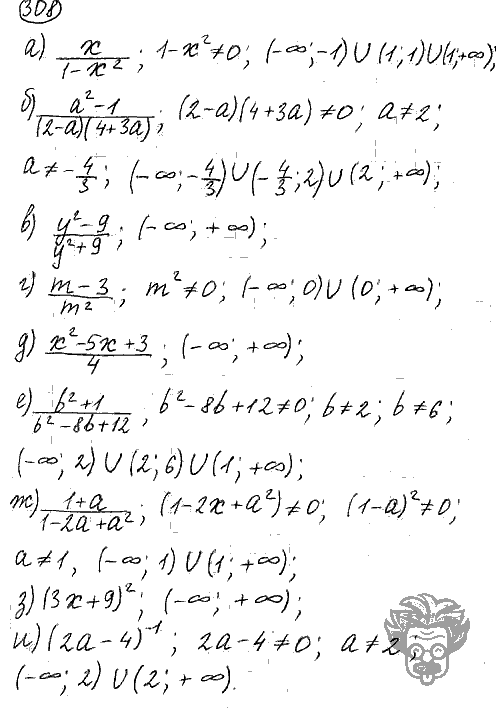 308
а) x/(1-x²); 1-x²≠0; (-∞;-1)∪(1;1)∪(1;+∞);
б) (a²-1)/((2-a)(4+3a)); (2-a)(4+3a)≠0; a≠2;
a≠-4/3; (-∞;-4/3)∪(-4/3;2)∪(2;+∞);
в) (y²-9)/(y²+9); (-∞;+∞);
г) (m-3)/m²; m²≠0; (-∞;0)∪(0;+∞);
д) (x²-5x+3)/4; (-∞;+∞);
е) (b²+1)/(b²-8b+12); b²-8b+12≠0; b≠2; b≠6;
(-∞;2)∪(2;6)∪(1;+∞);
ж) (1+a)/(1-2a+a²); (1-2x+a²)≠0; (1-a)²≠0;
a≠1, (-∞;1)∪(1;+∞);
з) (3x+9)²; (-∞;+∞);
и) (2a-4)⁻¹; 2a-4≠0; a≠2;
(-∞;2)∪(2;+∞).